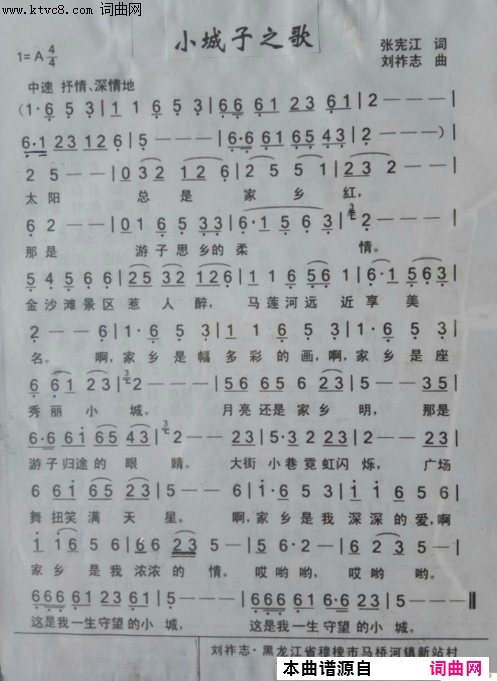 www.ktvc8.com 词曲网
小城子之歌
1=A 4/4
张宪江 词
刘祚志 曲
中速 抒情、深情地
(1·6 5 3 | 1 1 6 5 3 | 66 61 23 61 | 2 — — — |
6·1 23 12 6 | 5 — — — | 6·6 61 65 43 | 2 — — — ) |
2 5 — — | 0 32 12 6 | 2 5 5 1 | 23 2 — — |
太阳 总是家乡红,
6 2 — — | 0 1 6 5 33 | 6·1 5 53 | 2 — — — |
那是 游子思乡的柔情。
5 45 66 | 25 32 126 | 1 1 6 56 | 6·1 563 |
金沙滩景区惹人醉, 马莲河远近享美
2 — — 6 | 1·6 5 3 | 1 1 6 5 3 | 1·6 5 3 |
名, 啊,家乡是幅多彩的画,啊,家乡是座
6 61 23 | 2 — — — | 56 65 6 23 | 5 — — 35 |
秀丽小城。 月亮还是家乡明, 那是
6·6 61 65 43 | 2 — — 23 | 5·3 2 23 | 5 — — 23 |
游子归途的眼睛。 大街小巷霓虹闪烁, 广场
6 61 65 23 | 5 — — 6 | 1·6 5 3 | 1 1 6 5 6 |
舞扭笑满天星。 啊,家乡是我深深的爱,啊
1 16 5 6 | 66 23 5 — | 5 6·2 — | 5 3 5 — |
家乡是我浓浓的情。 哎哟哟, 哎哟哟。
666 66 61 23 | 5 — — — | 666 66 6 1 | 2 — — — ‖
这是我一生守望的小城, 这是我一生守望的小城。
刘祚志·黑龙江省穆棱市马桥河镇新站村
本曲谱源自 词曲网